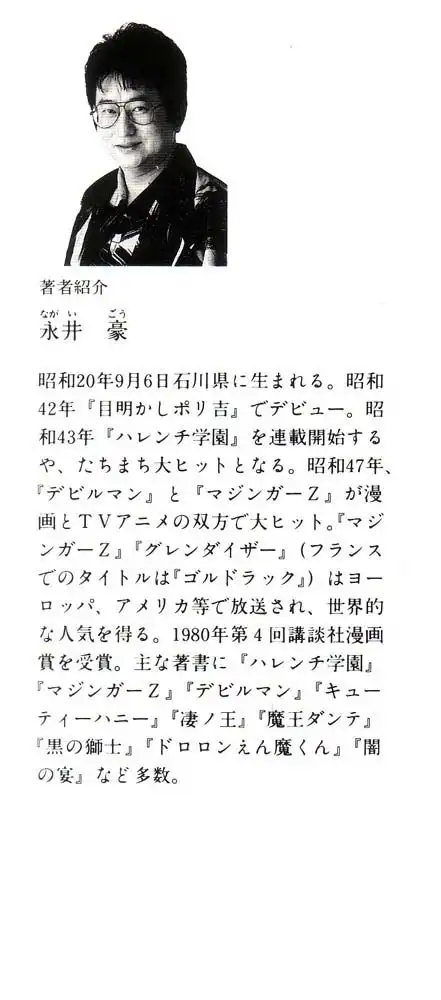 著者紹介
なが い ごう
永井 豪
昭和20年9月6日石川県に生まれる。昭和
42年『目明かしポリ吉』でデビュー。昭
和43年『ハレンチ学園』を連載開始する
や、たちまち大ヒットとなる。昭和47年、
『デビルマン』と『マジンガーZ』が漫
画とTVアニメの双方で大ヒット。『マジ
ンガーZ』『グレンダイザー』(フランス
でのタイトルは『ゴルドラック』)はヨー
ロッパ、アメリカ等で放送され、世界的
な人気を得る。1980年第4回講談社漫画
賞を受賞。主な著書に『ハレンチ学園』
『マジンガーZ』『デビルマン』『キュー
ティーハニー』『凄ノ王』『魔王ダンテ』
『黒の獅士』『ドロロンえん魔くん』『闇
の宴』など多数。